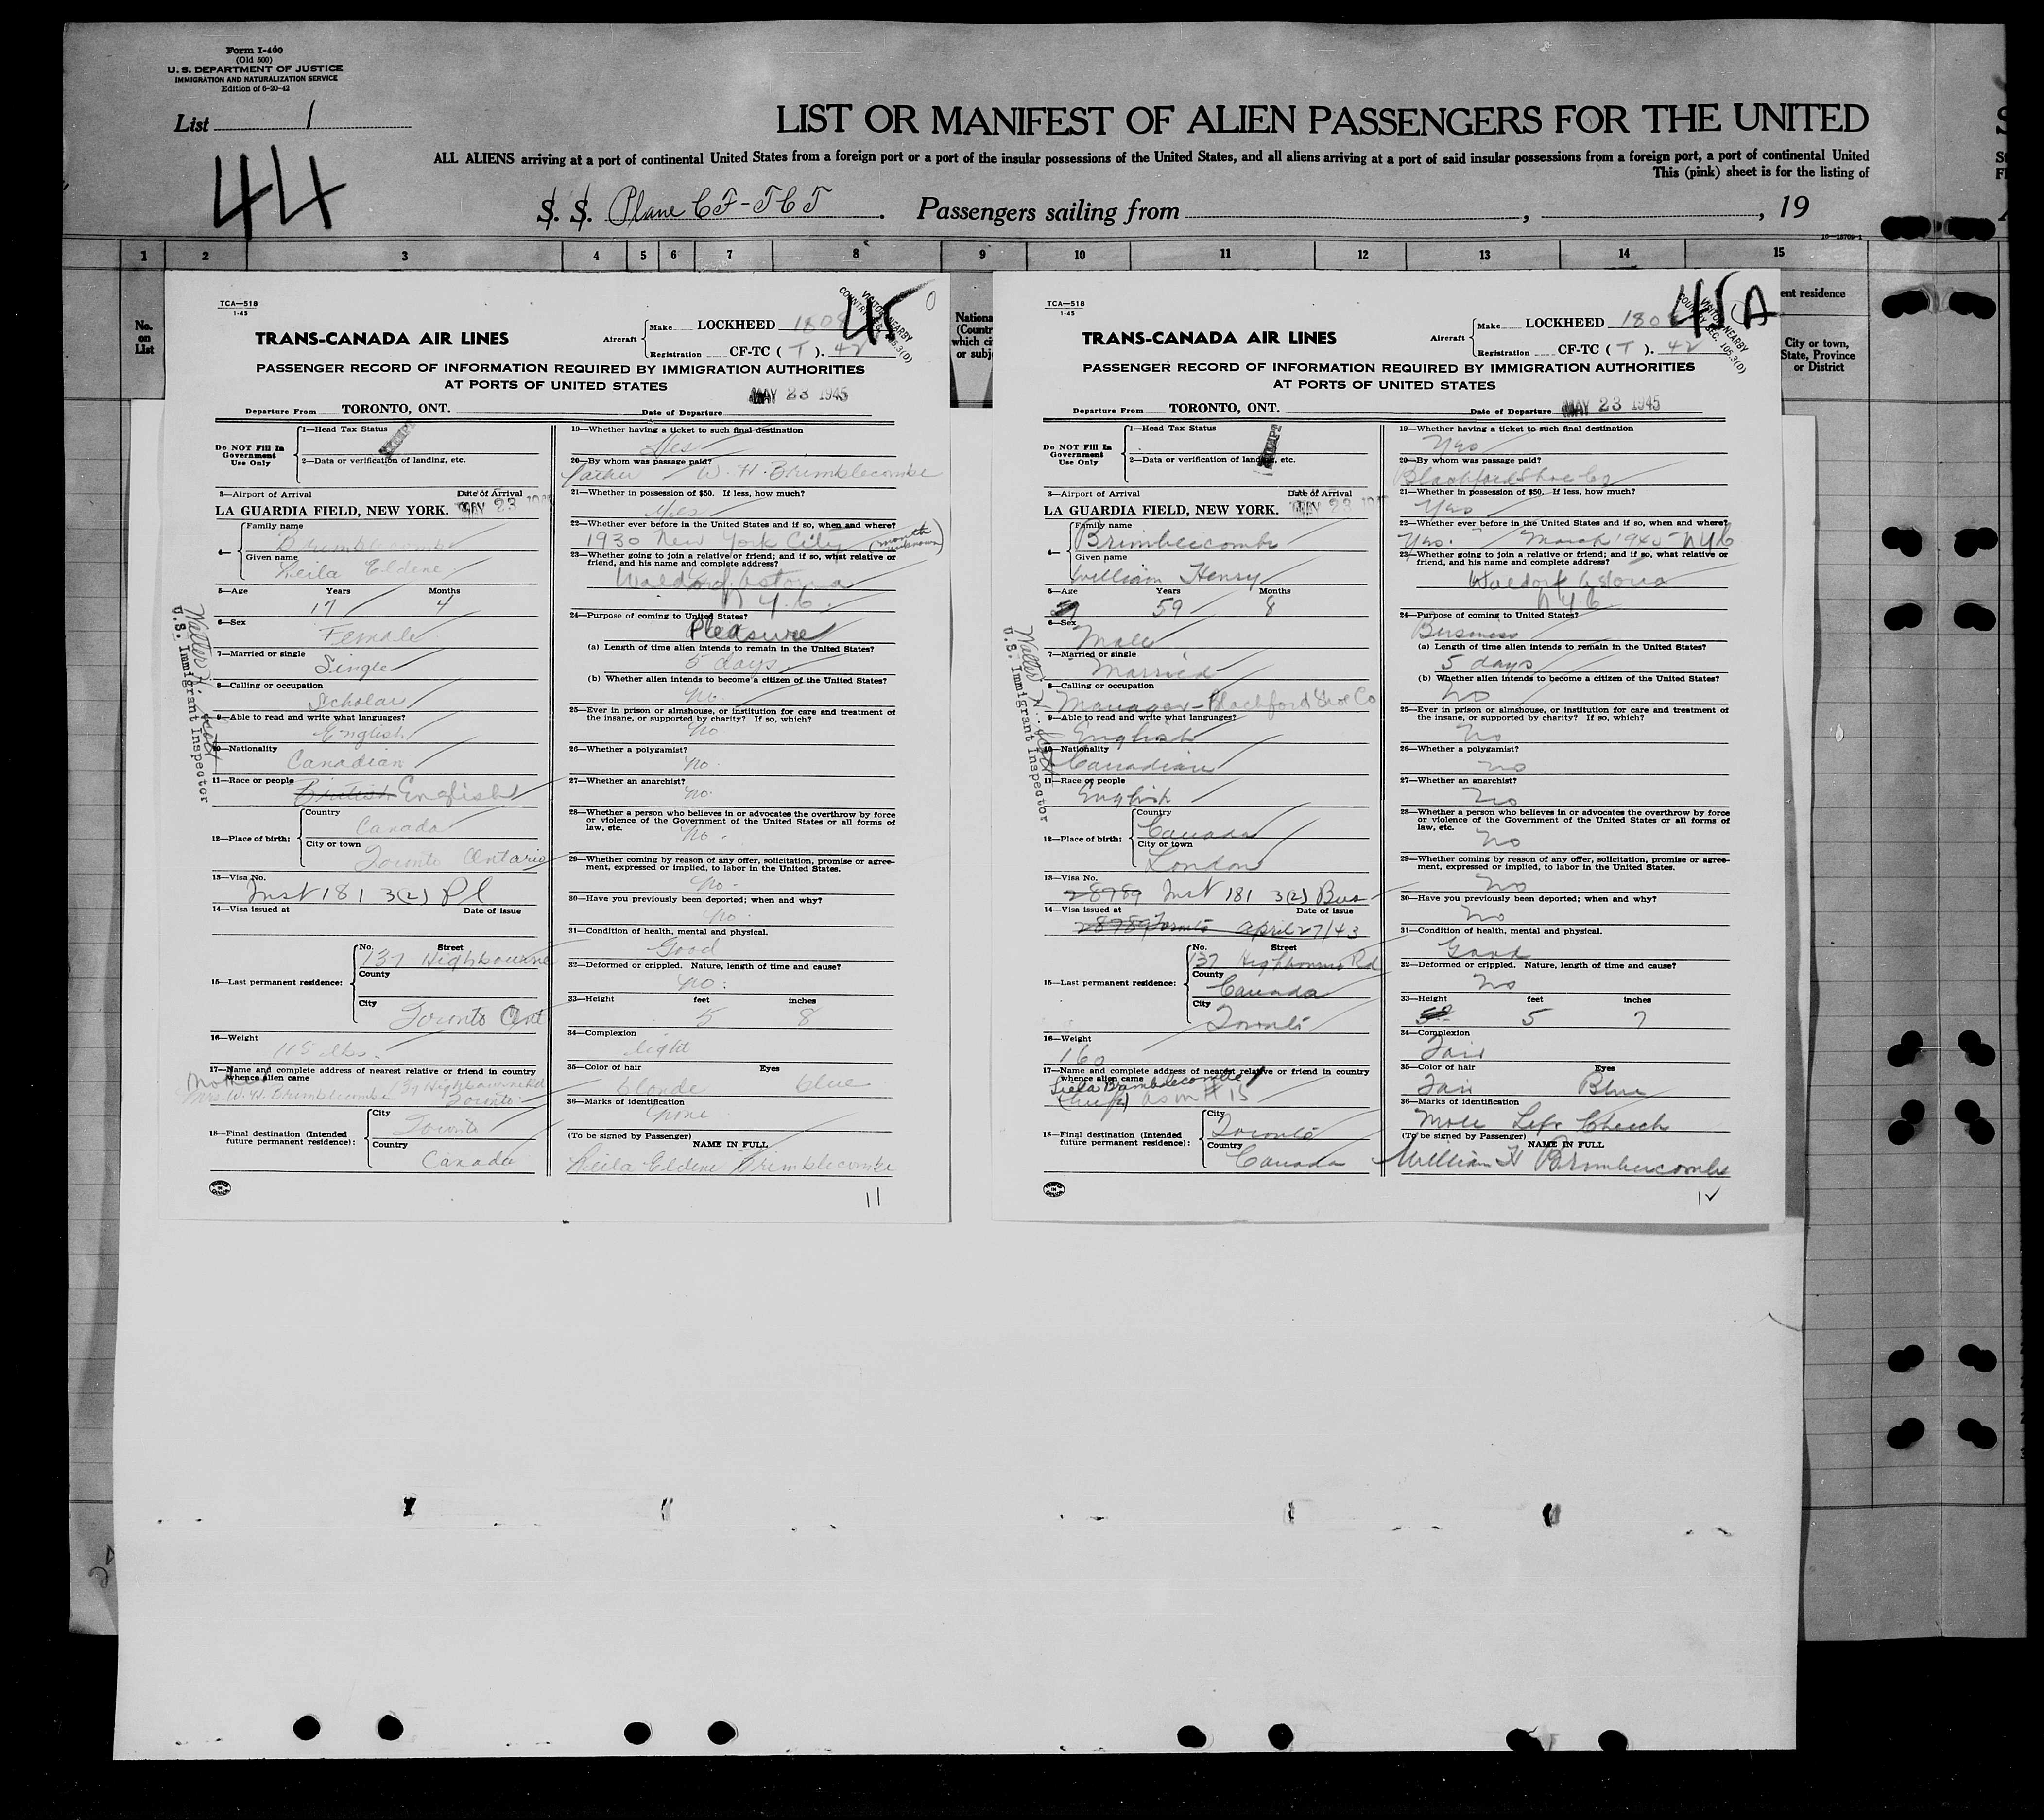 Form I-400
(Old 500)
U. S. DEPARTMENT OF JUSTICE
IMMIGRATION AND NATURALIZATION SERVICE
Edition of 6-20-42
List 1
44
LIST OR MANIFEST OF ALIEN PASSENGERS FOR THE UNITED
ALL ALIENS arriving at a port of continental United States from a foreign port or a port of the insular possessions of the United States, and all aliens arriving at a port of said insular possessions from a foreign port, a port of continental United
This (pink) sheet is for the listing of
S. S. Plane CF-TCT. Passengers sailing from , , 19
1 2 3 4 5 6 7 8 9 10 11 12 13 14 15
No.
on
List
Nationa
(Countr
which ci
or subj
ent residence
City or town,
State, Province
or District
TCA—518
1-45
45
VISITOR NEARBY
COUNTRY SEC. 105.3(D)
TRANS-CANADA AIR LINES
Aircraft
Make LOCKHEED 180
Registration CF-TC ( T ). 42
PASSENGER RECORD OF INFORMATION REQUIRED BY IMMIGRATION AUTHORITIES
AT PORTS OF UNITED STATES
Departure From TORONTO, ONT.
Date of Departure MAY 23 1945
Do NOT Fill In
Government
Use Only
1—Head Tax Status
EXEMPT
2—Data or verification of landing, etc.
3—Airport of Arrival Date of Arrival
LA GUARDIA FIELD, NEW YORK. MAY 23
4—
Family name
Brimblecombe
Given name
Sheila Eldene
5—Age Years Months
17 4
6—Sex
Female
7—Married or single
Single
8—Calling or occupation
Scholar
9—Able to read and write what languages?
English
10—Nationality
Canadian
11—Race or people British English
12—Place of birth:
Country
Canada
City or town
Toronto Ontario
13—Visa No.
Inst 181 3(2) Pl
14—Visa issued at Date of issue
15—Last permanent residence:
No. Street
137 Highbourne
County
City
Toronto Ont
16—Weight
115 lbs.
17—Name and complete address of nearest relative or friend in country
whence alien came
Mother
Mrs. W. H. Brimblecombe 137 Highbourne Rd
Toronto
18—Final destination (Intended
future permanent residence):
City
Toronto
Country
Canada
U.S. Immigrant Inspector
19—Whether having a ticket to such final destination
Yes
20—By whom was passage paid?
Father W. H. Brimblecombe
21—Whether in possession of $50. If less, how much?
Yes
22—Whether ever before in the United States and if so, when and where?
1930 New York City (month unknown)
23—Whether going to join a relative or friend; and if so, what relative or
friend, and his name and complete address?
Waldorf Astoria
N.Y.C.
24—Purpose of coming to United States?
Pleasure
(a) Length of time alien intends to remain in the United States?
5 days
(b) Whether alien intends to become a citizen of the United States?
No.
25—Ever in prison or almshouse, or institution for care and treatment of
the insane, or supported by charity? If so, which?
No
26—Whether a polygamist?
No.
27—Whether an anarchist?
No.
28—Whether a person who believes in or advocates the overthrow by force
or violence of the Government of the United States or all forms of
law, etc.
No.
29—Whether coming by reason of any offer, solicitation, promise or agree-
ment, expressed or implied, to labor in the United States.
No.
30—Have you previously been deported; when and why?
No.
31—Condition of health, mental and physical.
Good
32—Deformed or crippled. Nature, length of time and cause?
No.
33—Height feet inches
5 8
34—Complexion
light
35—Color of hair Eyes
blonde blue
36—Marks of identification
None
(To be signed by Passenger)
NAME IN FULL
Sheila Eldene Brimblecombe
11
TCA—518
1-45
45 A
VISITOR NEARBY
COUNTRY SEC. 105.3(D)
TRANS-CANADA AIR LINES
Aircraft
Make LOCKHEED 180
Registration CF-TC ( T ). 42
PASSENGER RECORD OF INFORMATION REQUIRED BY IMMIGRATION AUTHORITIES
AT PORTS OF UNITED STATES
Departure From TORONTO, ONT.
Date of Departure MAY 23 1945
Do NOT Fill In
Government
Use Only
1—Head Tax Status
EXEMPT
2—Data or verification of landing, etc.
3—Airport of Arrival Date of Arrival
LA GUARDIA FIELD, NEW YORK. MAY 23
4—
Family name
Brimblecombe
Given name
William Henry
5—Age Years Months
59 8
6—Sex
Male
7—Married or single
Married
8—Calling or occupation
Manager - Blachford Shoe Co
9—Able to read and write what languages?
English
10—Nationality
Canadian
11—Race or people
English
12—Place of birth:
Country
Canada
City or town
London
13—Visa No.
28789 Inst 181 3(2) Bus
14—Visa issued at Date of issue
28789 Toronto April 27/43
15—Last permanent residence:
No. Street
137 Highbourne Rd
County
Canada
City
Toronto
16—Weight
160
17—Name and complete address of nearest relative or friend in country
whence alien came
Brimblecombe
(wife) as in # 15
18—Final destination (Intended
future permanent residence):
City
Toronto
Country
Canada
U.S. Immigrant Inspector
19—Whether having a ticket to such final destination
Yes
20—By whom was passage paid?
Blachford Shoe Co
21—Whether in possession of $50. If less, how much?
Yes
22—Whether ever before in the United States and if so, when and where?
Yes. March 1945 NYC
23—Whether going to join a relative or friend; and if so, what relative or
friend, and his name and complete address?
Waldorf Astoria
N.Y.C
24—Purpose of coming to United States?
Business
(a) Length of time alien intends to remain in the United States?
5 days
(b) Whether alien intends to become a citizen of the United States?
No
25—Ever in prison or almshouse, or institution for care and treatment of
the insane, or supported by charity? If so, which?
No
26—Whether a polygamist?
No
27—Whether an anarchist?
No
28—Whether a person who believes in or advocates the overthrow by force
or violence of the Government of the United States or all forms of
law, etc.
No
29—Whether coming by reason of any offer, solicitation, promise or agree-
ment, expressed or implied, to labor in the United States.
No
30—Have you previously been deported; when and why?
No
31—Condition of health, mental and physical.
Good
32—Deformed or crippled. Nature, length of time and cause?
No
33—Height feet inches
5 7
34—Complexion
Fair
35—Color of hair Eyes
Fair Blue
36—Marks of identification
Mole Left Cheek
(To be signed by Passenger)
NAME IN FULL
William H Brimblecombe